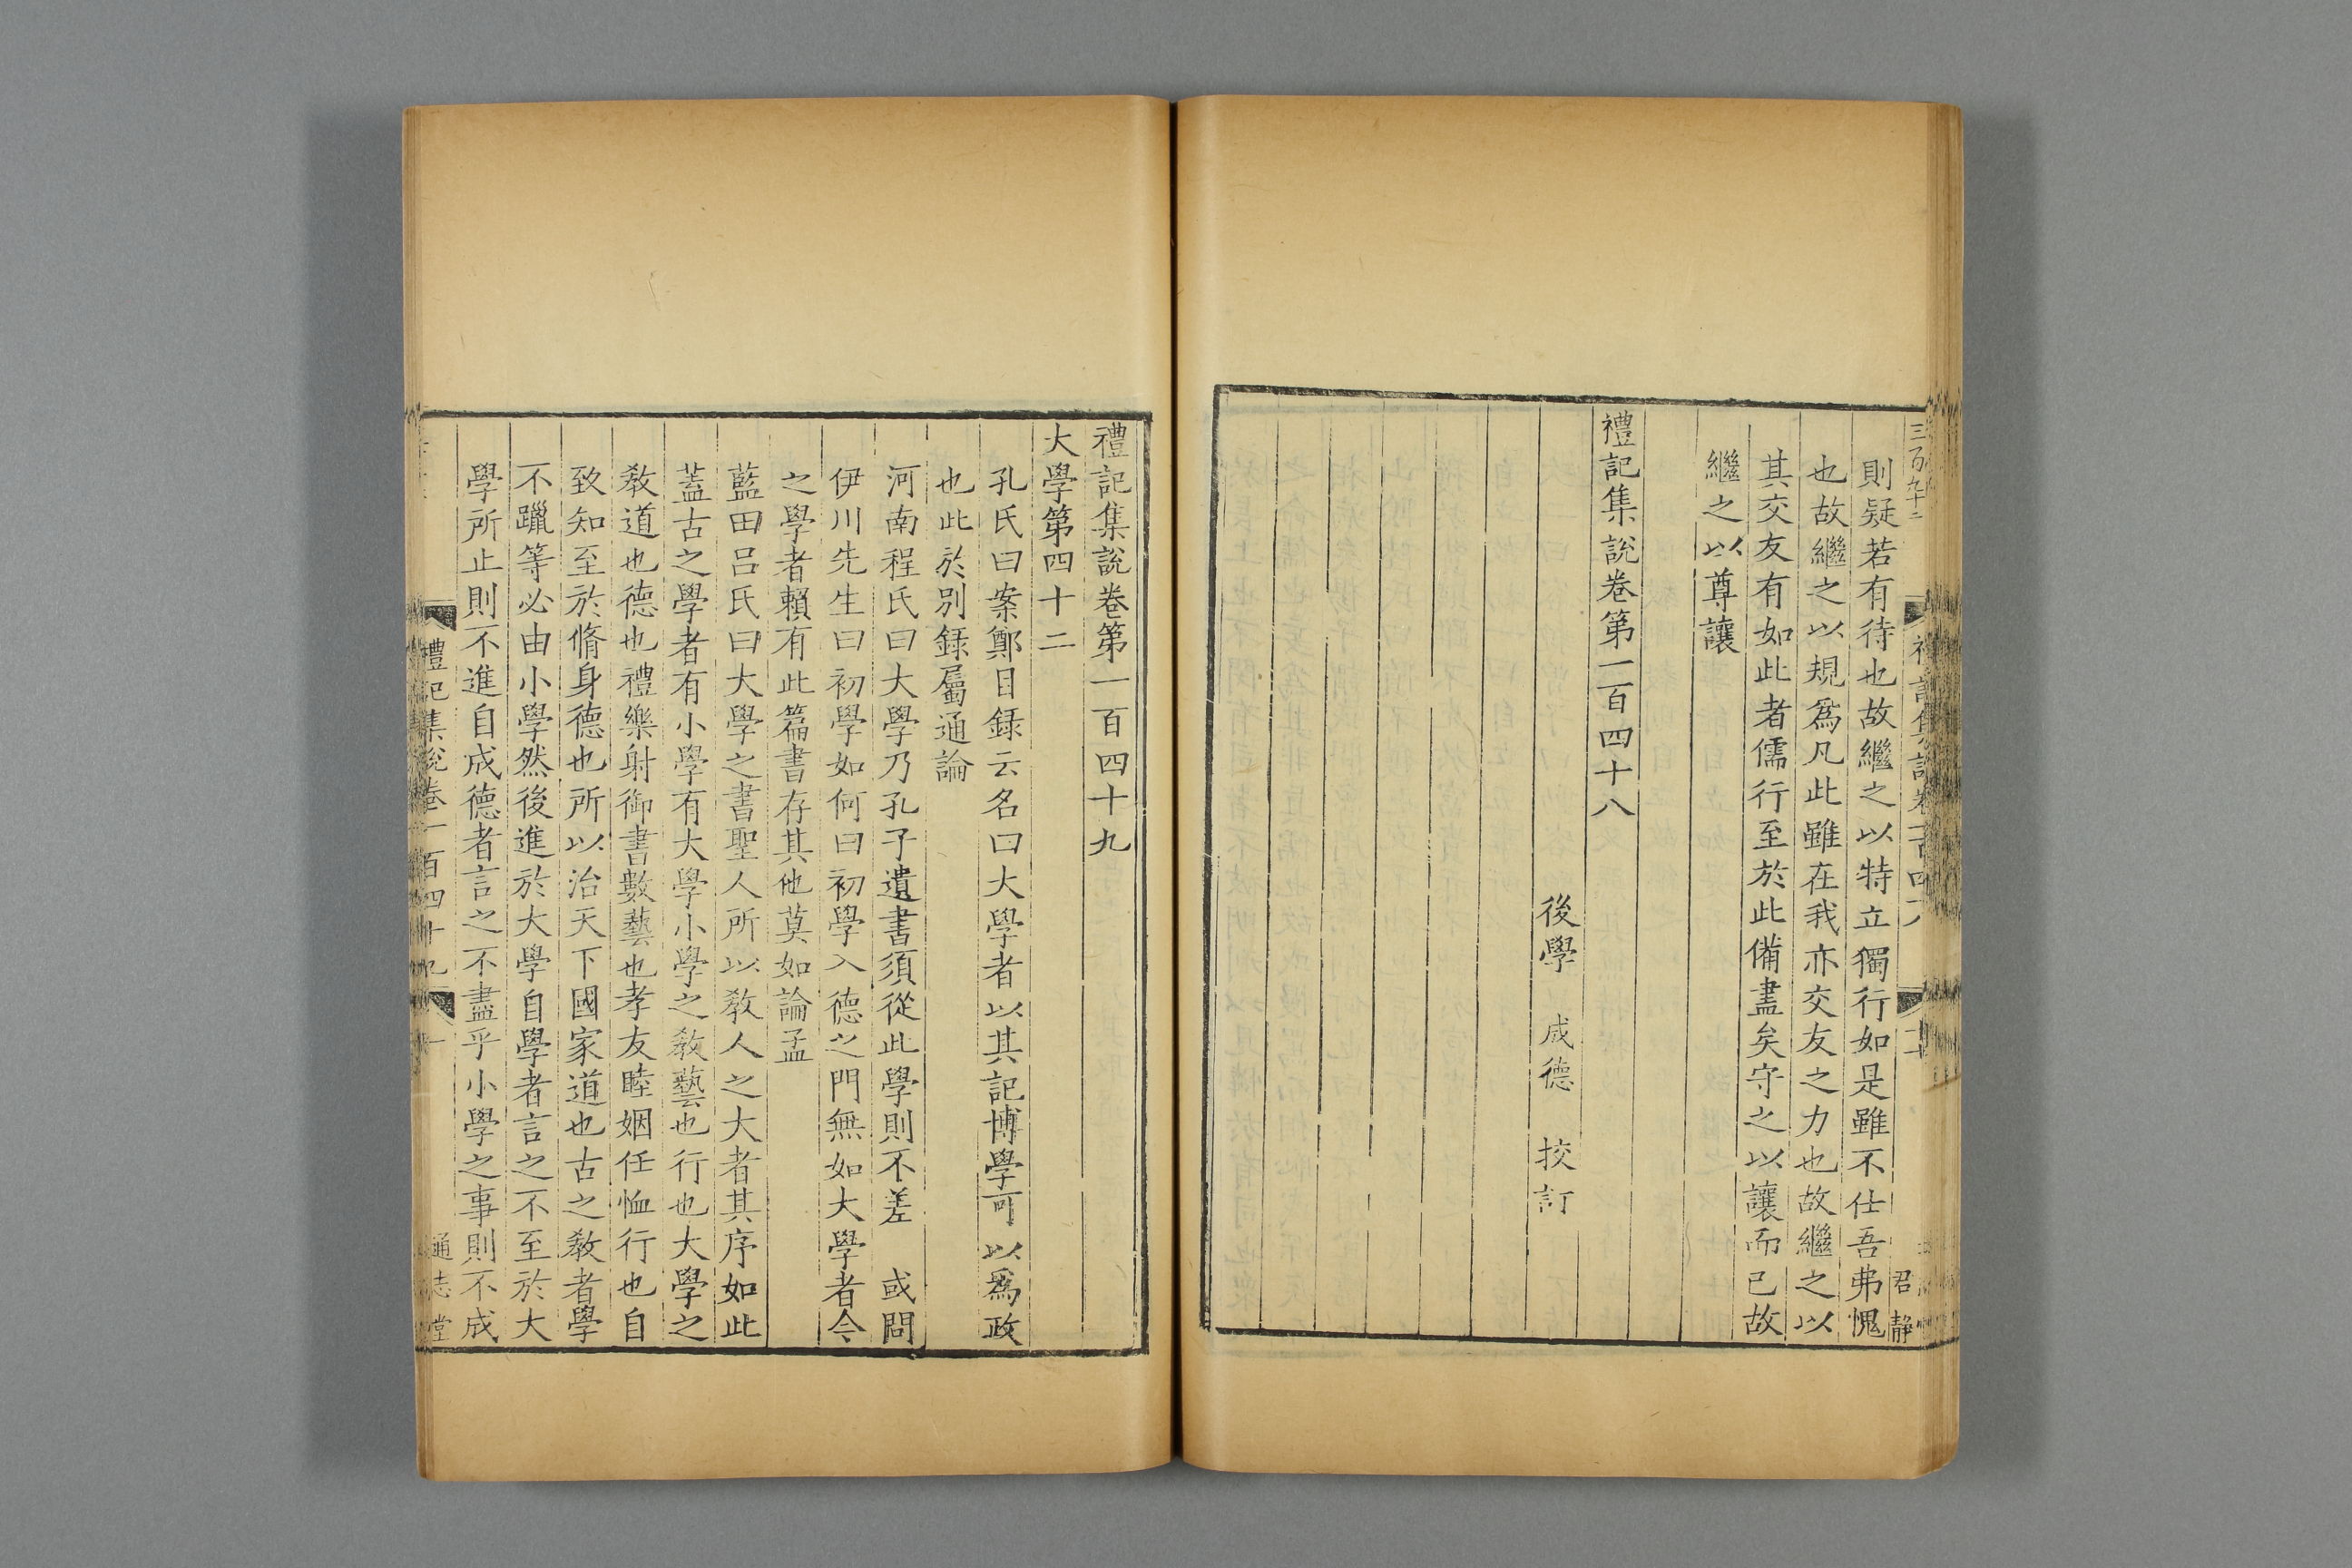 三百九十二
則疑若有待也故繼之以特立獨行如是雖不仕吾弗愧
也故繼之以規爲凡此雖在我亦交友之力也故繼之以
其交友有如此者儒行至於此備盡矣守之以讓而已故
繼之以尊讓
禮記集說卷第一百四十八
後學 成德 挍訂
君静
禮記集說卷第一百四十九
大學第四十二
孔氏曰案鄭目録云名曰大學者以其記博學可以爲政
也此於別録屬通論
河南程氏曰大學乃孔子遺書須從此學則不差 或問
伊川先生曰初學如何曰初學入德之門無如大學者今
之學者賴有此篇書存其他莫如論孟
藍田呂氏曰大學之書聖人所以教人之大者其序如此
蓋古之學者有小學有大學小學之教藝也行也大學之
教道也德也禮樂射御書數藝也孝友睦婣任恤行也自
致知至於脩身德也所以治天下國家道也古之教者學
不躐等必由小學然後進於大學自學者言之不至於大
學所止則不進自成德者言之不盡乎小學之事則不成
禮記集說卷一百四十九
通志堂